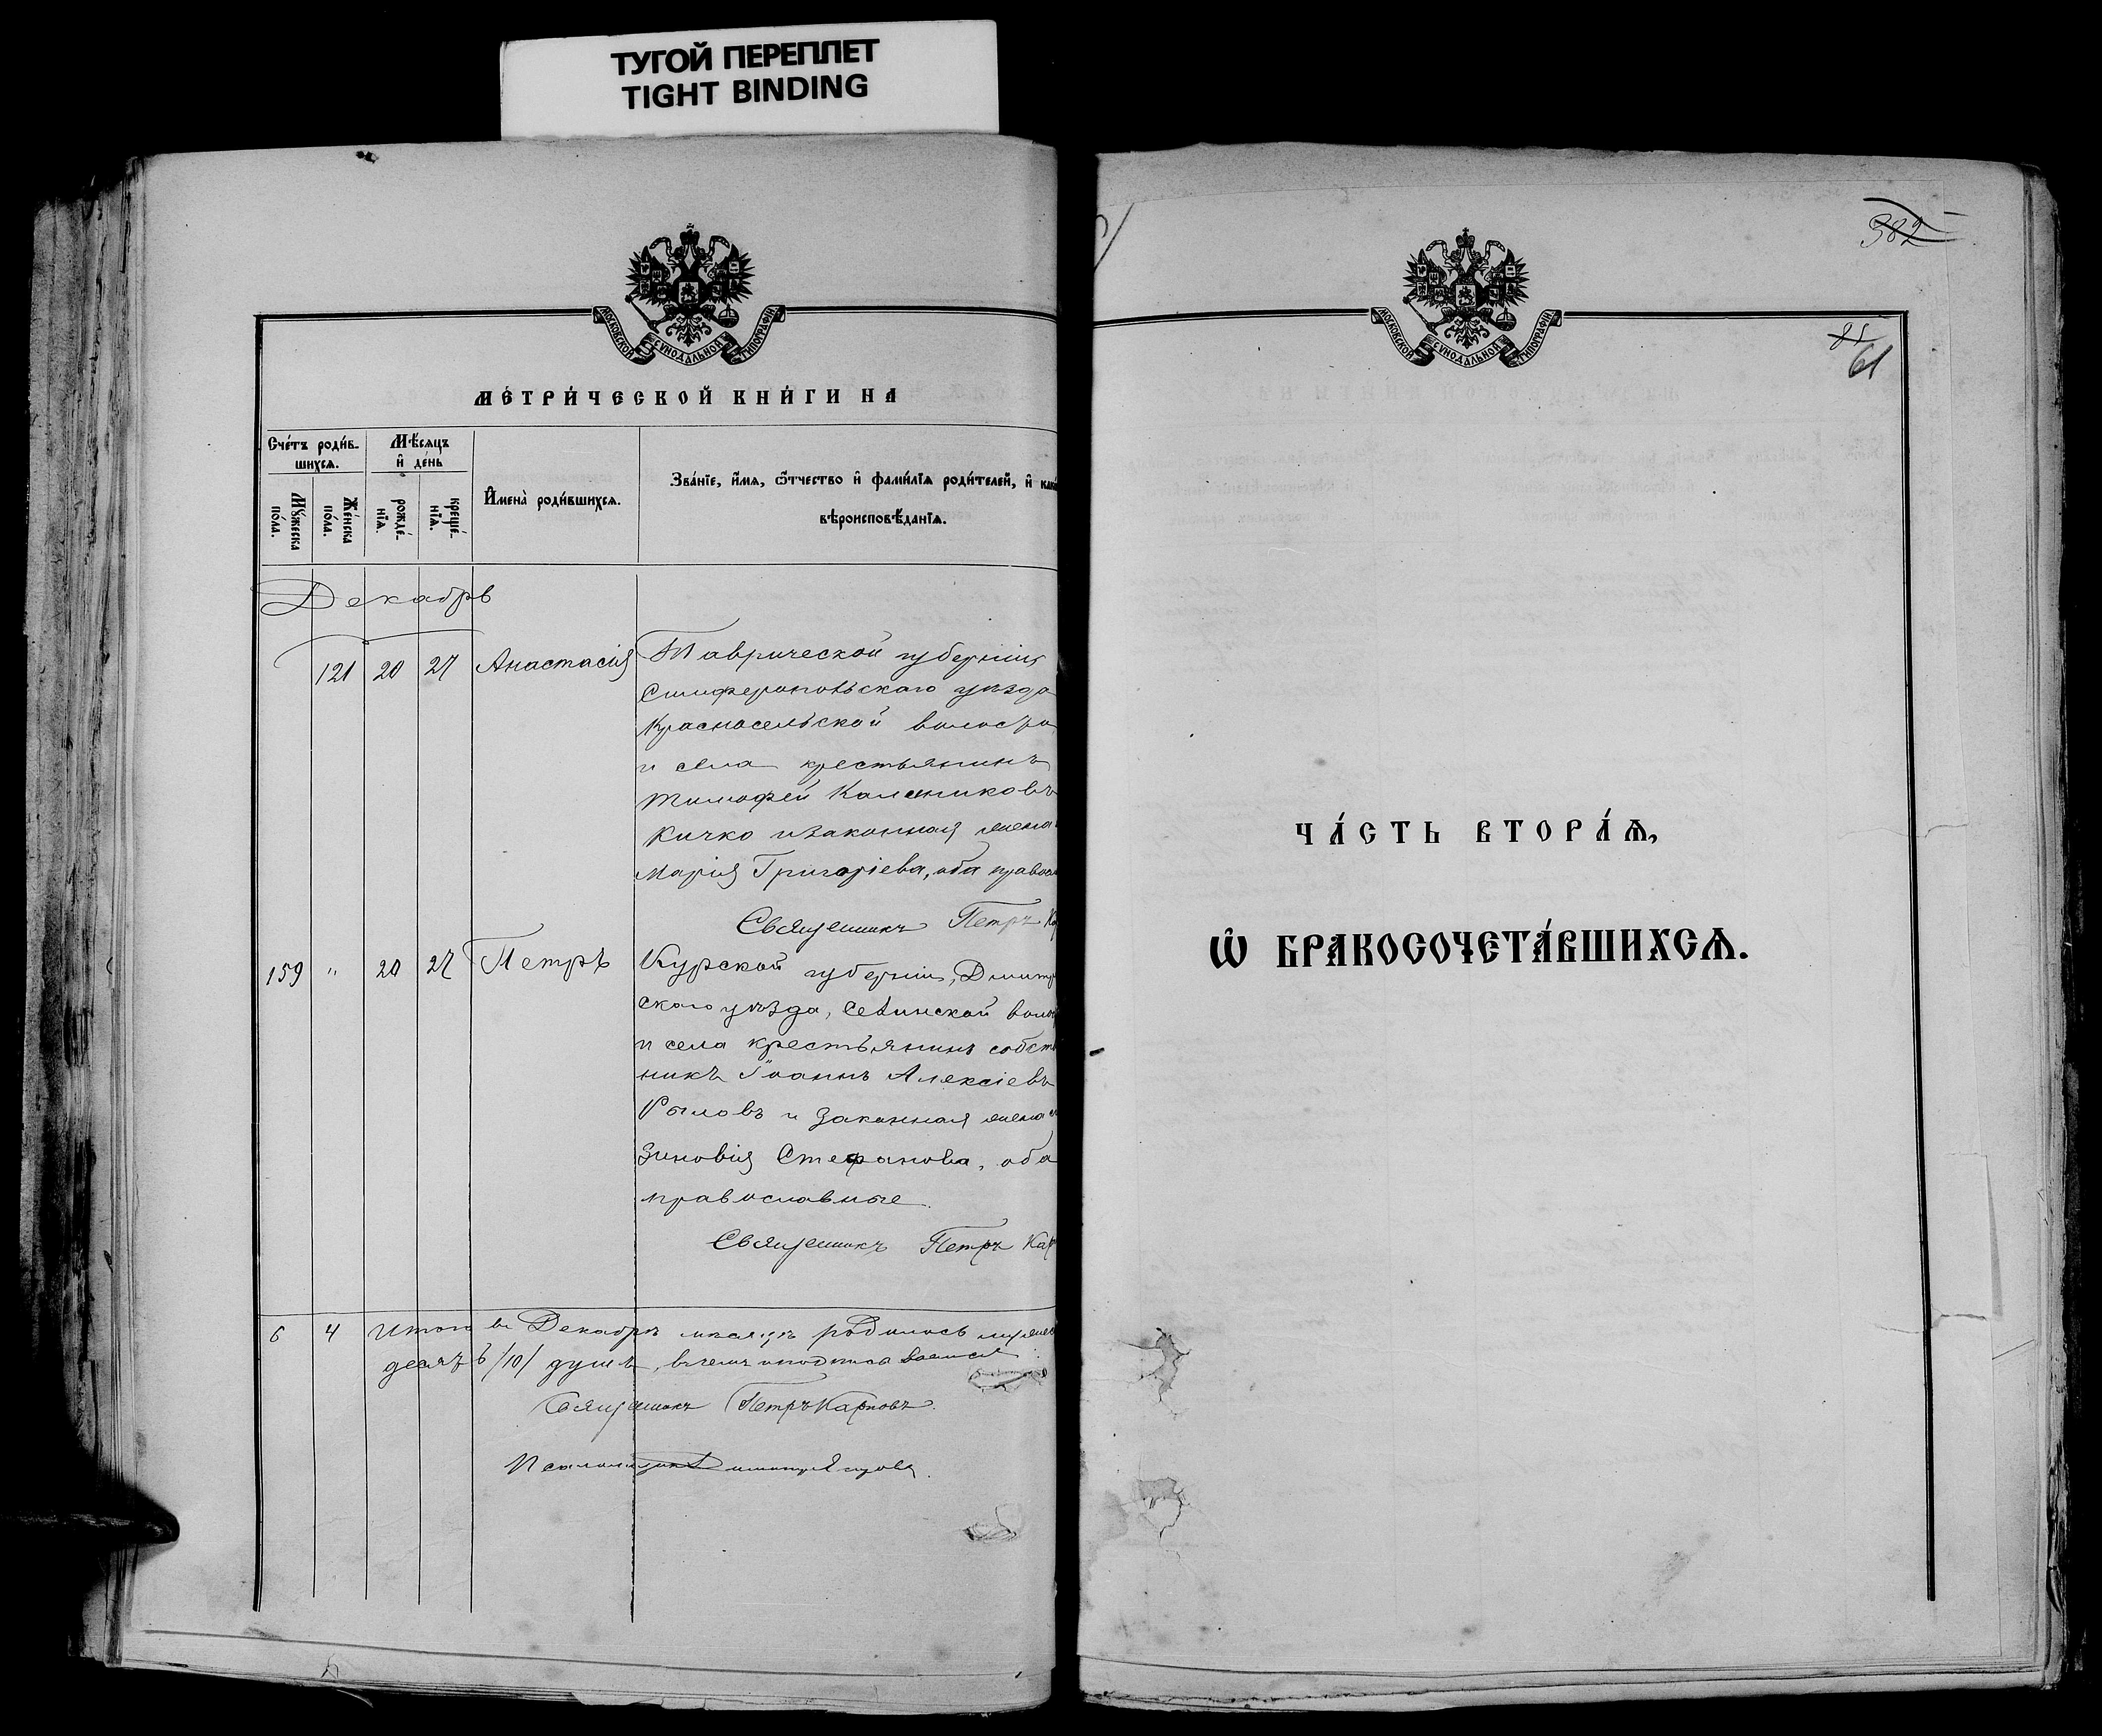 ТУГОЙ ПЕРЕПЛЕТ
TIGHT BINDING
МОСКОВСКОЙ СѴНОДАЛЬНОЙ ТИПОГРАФІИ
МЕТРИ́ЧЕСКОЙ КНИ́ГИ НА
Сче́тъ роди́в-
шихсѧ.
Мꙋ́жеска
по́ла.
Же́нска
по́ла.
Мѣ́сѧцъ
и҆ де́нь
рожде́-
нїѧ.
креще́-
нїѧ.
И҆мена̀ роди́вшихсѧ.
Зва́нїе, и҆́мѧ, ѻ҆́тчество и҆ фами́лїѧ роди́телей, и҆
вѣроисповѣ́данїѧ.
Декабрь
121 20 27 Анастасія Таврической губерніи
Симферопольскаго уѣзда
Красносельской
и села крестьянинъ
Тимофей Калениковъ
Кичко и законная жена
Марія Григоріева, оба
Священникъ Петръ
159 " 20 27 Петръ Курской губерніи,
скаго уѣзда,
и села крестьянинъ
никъ Іоаннъ Алексіевъ
Рыловъ и законная жена
Зиновія Стефанова, оба
православные
Священникъ Петръ
6 4 Итого въ Декабрѣ мѣсяцѣ родилось
десять /10/ душъ, въ чемъ и подписа
Священникъ Петръ Карповъ.
Псаломщикъ
382
61
МОСКОВСКОЙ СѴНОДАЛЬНОЙ ТИПОГРАФІИ
ЧА́СТЬ ВТОРА́Ѧ,
Ѽ БРАКОСОЧЕТА́ВШИХСѦ.